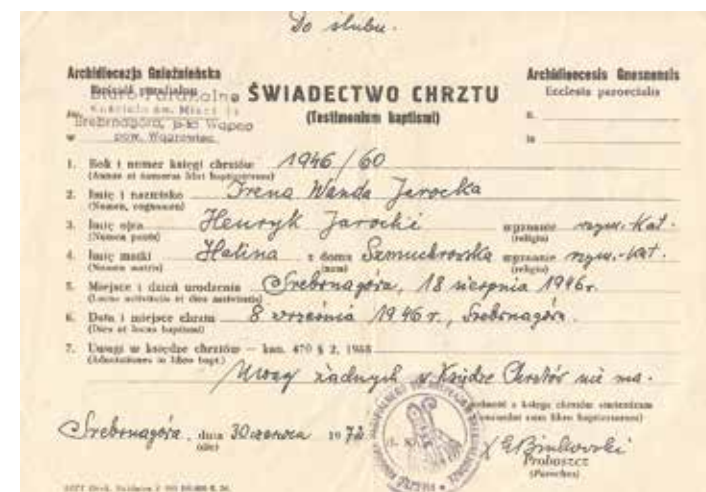 Do ślubu.
Archidiecezja Gnieźnieńska
Archidioecesis Gnesnensis
Biuro Parafialne
Ecclesia paroecialis
ŚWIADECTWO CHRZTU
Kościoła św.
(Testimonium baptismi)
Srebrnagóra, p-ta Wapno
w pow. Wągrowiec
1. Rok i numer księgi chrztów 1946/60
(Annus et numerus libri baptizatorum)
2. Imię i nazwisko Irena Wanda Jarocka
(Nomen, cognomen)
3. Imię ojca Henryk Jarocki wyznanie rzym.-kat.
(Nomen patris) (religio)
4. Imię matki Halina z domu wyznanie rzym.-kat.
(Nomen matris) (nata) (religio)
5. Miejsce i dzień urodzenia Srebrnagóra, 18 sierpnia 1946r.
(Locus nativitatis et dies nativitatis)
6. Data i miejsce chrztu 8 września 1946 r., Srebrnagóra.
(Dies et locus baptismi)
7. Uwagi w księdze chrztów — kan. 470 § 2, 1988
(Adnotationes in libro bapt.)
Uwag żadnych w Księdze Chrztów nie ma.
z księgą chrztów stwierdzam
cum libro baptizatorum)
Srebrnagóra, dnia 30 czerwca 1973.
(die)
Proboszcz
(Parochus)